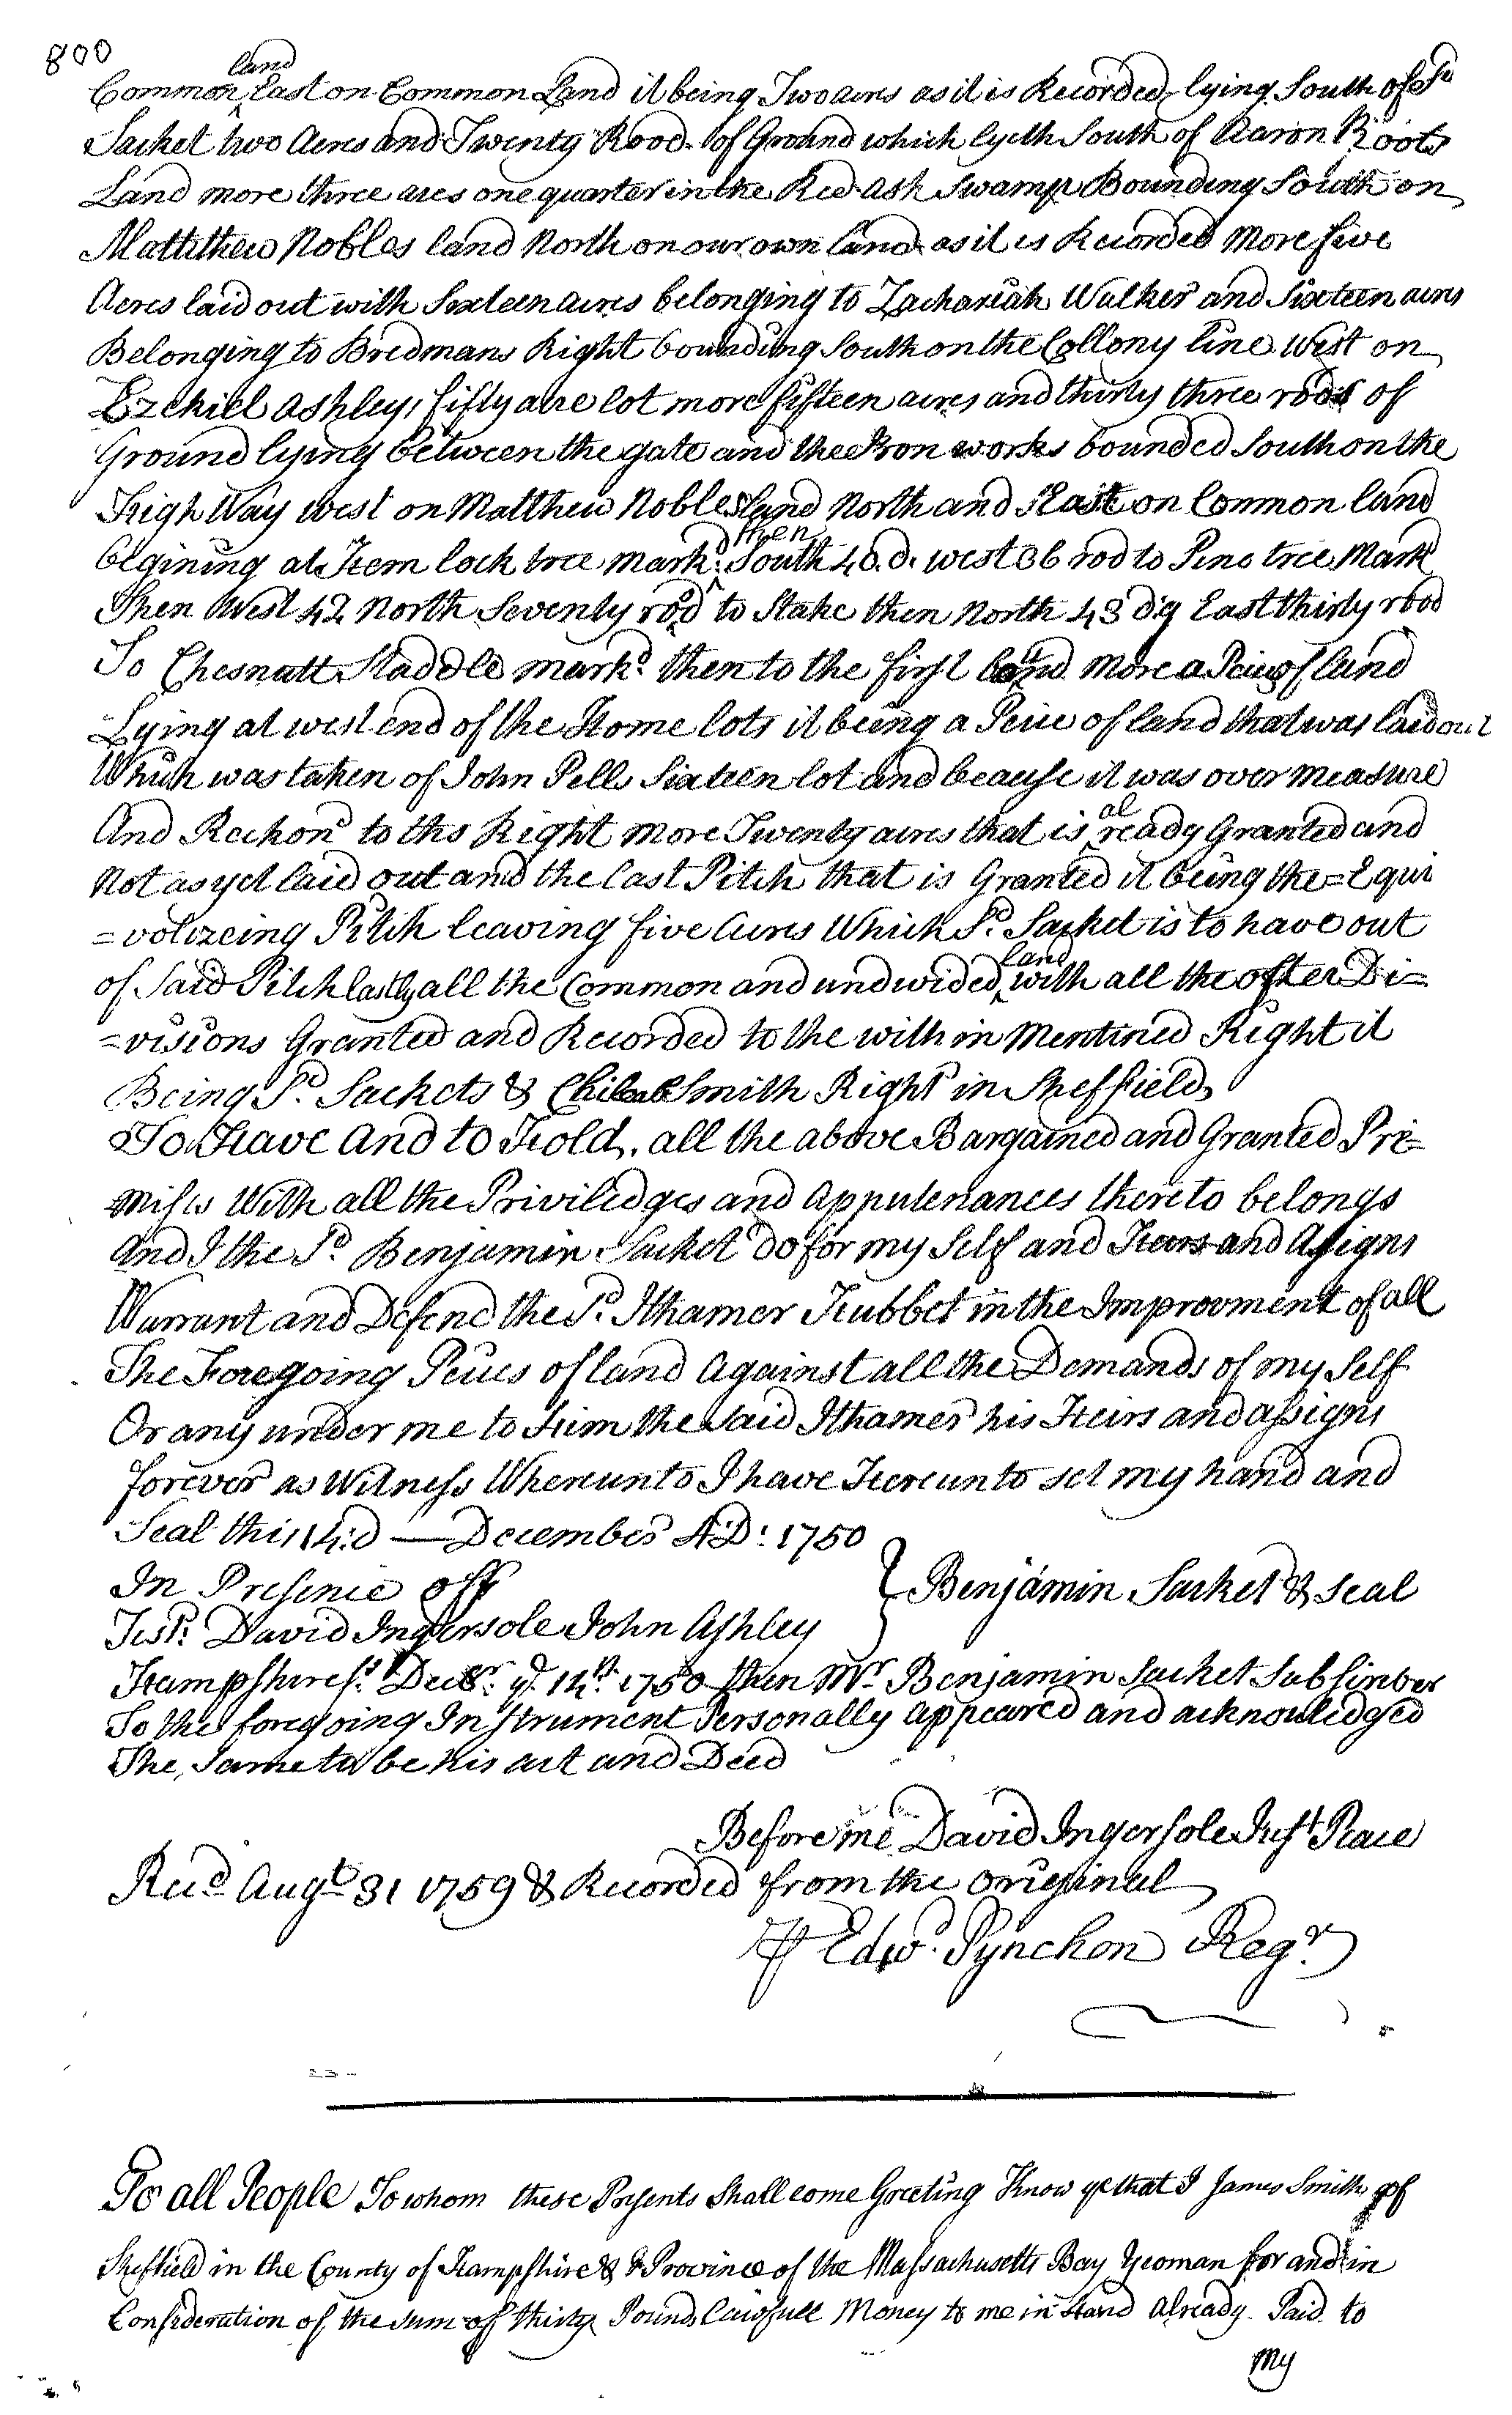 800
land
Common East on Common Land it being Two acres as it is Recorded lying South of Sd
Sacket two Acres and Twenty Rood of Ground which lyeth South of Aaron Roots
Land more three acres one quarter in the Red Ash Swamp Bounding South on
Mattthew Nobles land North on our own land as it is Recorded More five
Acres laid out with Sixteen acres belonging to Zachariah Walker and Sixteen acres
Belonging to Bredmans Right bounding South on the Collony line West on
Ezekiel Ashleys fifty acre lot more fifteen acres and thirty three rods of
Ground lying between the gate and the Iron works bounded South on the
High Way west on Matthew Nobles land North and East on Common land
then
beginning at Hem lock tree markd South 40 d. west 36 rod to Pine tree Mark
Then West 42 North Seventy rod to Stake then North 43 dg East thirty rood
To Chesnutt Staddle markd then to the first bound More a Peice of land
Lying at west end of the Home lots it being a Peice of land that was laid out
Which was taken of John Pells Sixteen lot and because it was over measure
al
And Reckond to this Right more Twenty acres that is ready Granted and
Not as yet laid out and the last Pitch that is Granted it being the =Equi
=volizeing Pitch leaving five acres Which Sd Sacket is to have out
land
of Said Pitch lastly all the Common and undivided with all the after Di=
=visions Granted and Recorded to the with in Mentined Right it
Being Sd Sackets & Chileab Smith Right in Sheffield
To Have And to Hold, all the above Bargained and Granted Pre=
mises With all the Priviledges and appurtenances thereto belongs
And I the Sd Benjamin Sacket do for my Self and Heirs and Assigns
Warrant and Defend the Sd Ithamer Hubbet in the Improvment of all
The Foregoing Peices of land Against all the Demands of my Self
Or any under me to Him the Said Ithamer his Heirs and assigns
forever as Witness Whereunto I have Hereunto set my hand and
Seal this 14:d — December A:D: 1750
In Presence off
Benjamin Sacket & Seal
Test: David Ingersole John Ashley
Hampshire Ss. Decbr. ye. 14th. 1750 then Mr Benjamin Sacket Subscriber
To the foregoing Instrument Personally appeared and acknowledged
The Same to be his act and Deed
Before me David Ingersole Just Peace
Recd Augt 31 1759 & Recorded from the original
⅌ Edwd. Pynchon Regr.
To all People To whom these Presents Shall come Greeting Know ye that I James Smith of
Sheffield in the County of Hampshire & Province of the Massachusetts Bay Yeoman for and in
Consideration of the sum of thirty Pounds lawfull Money to me in Hand already Paid to
My